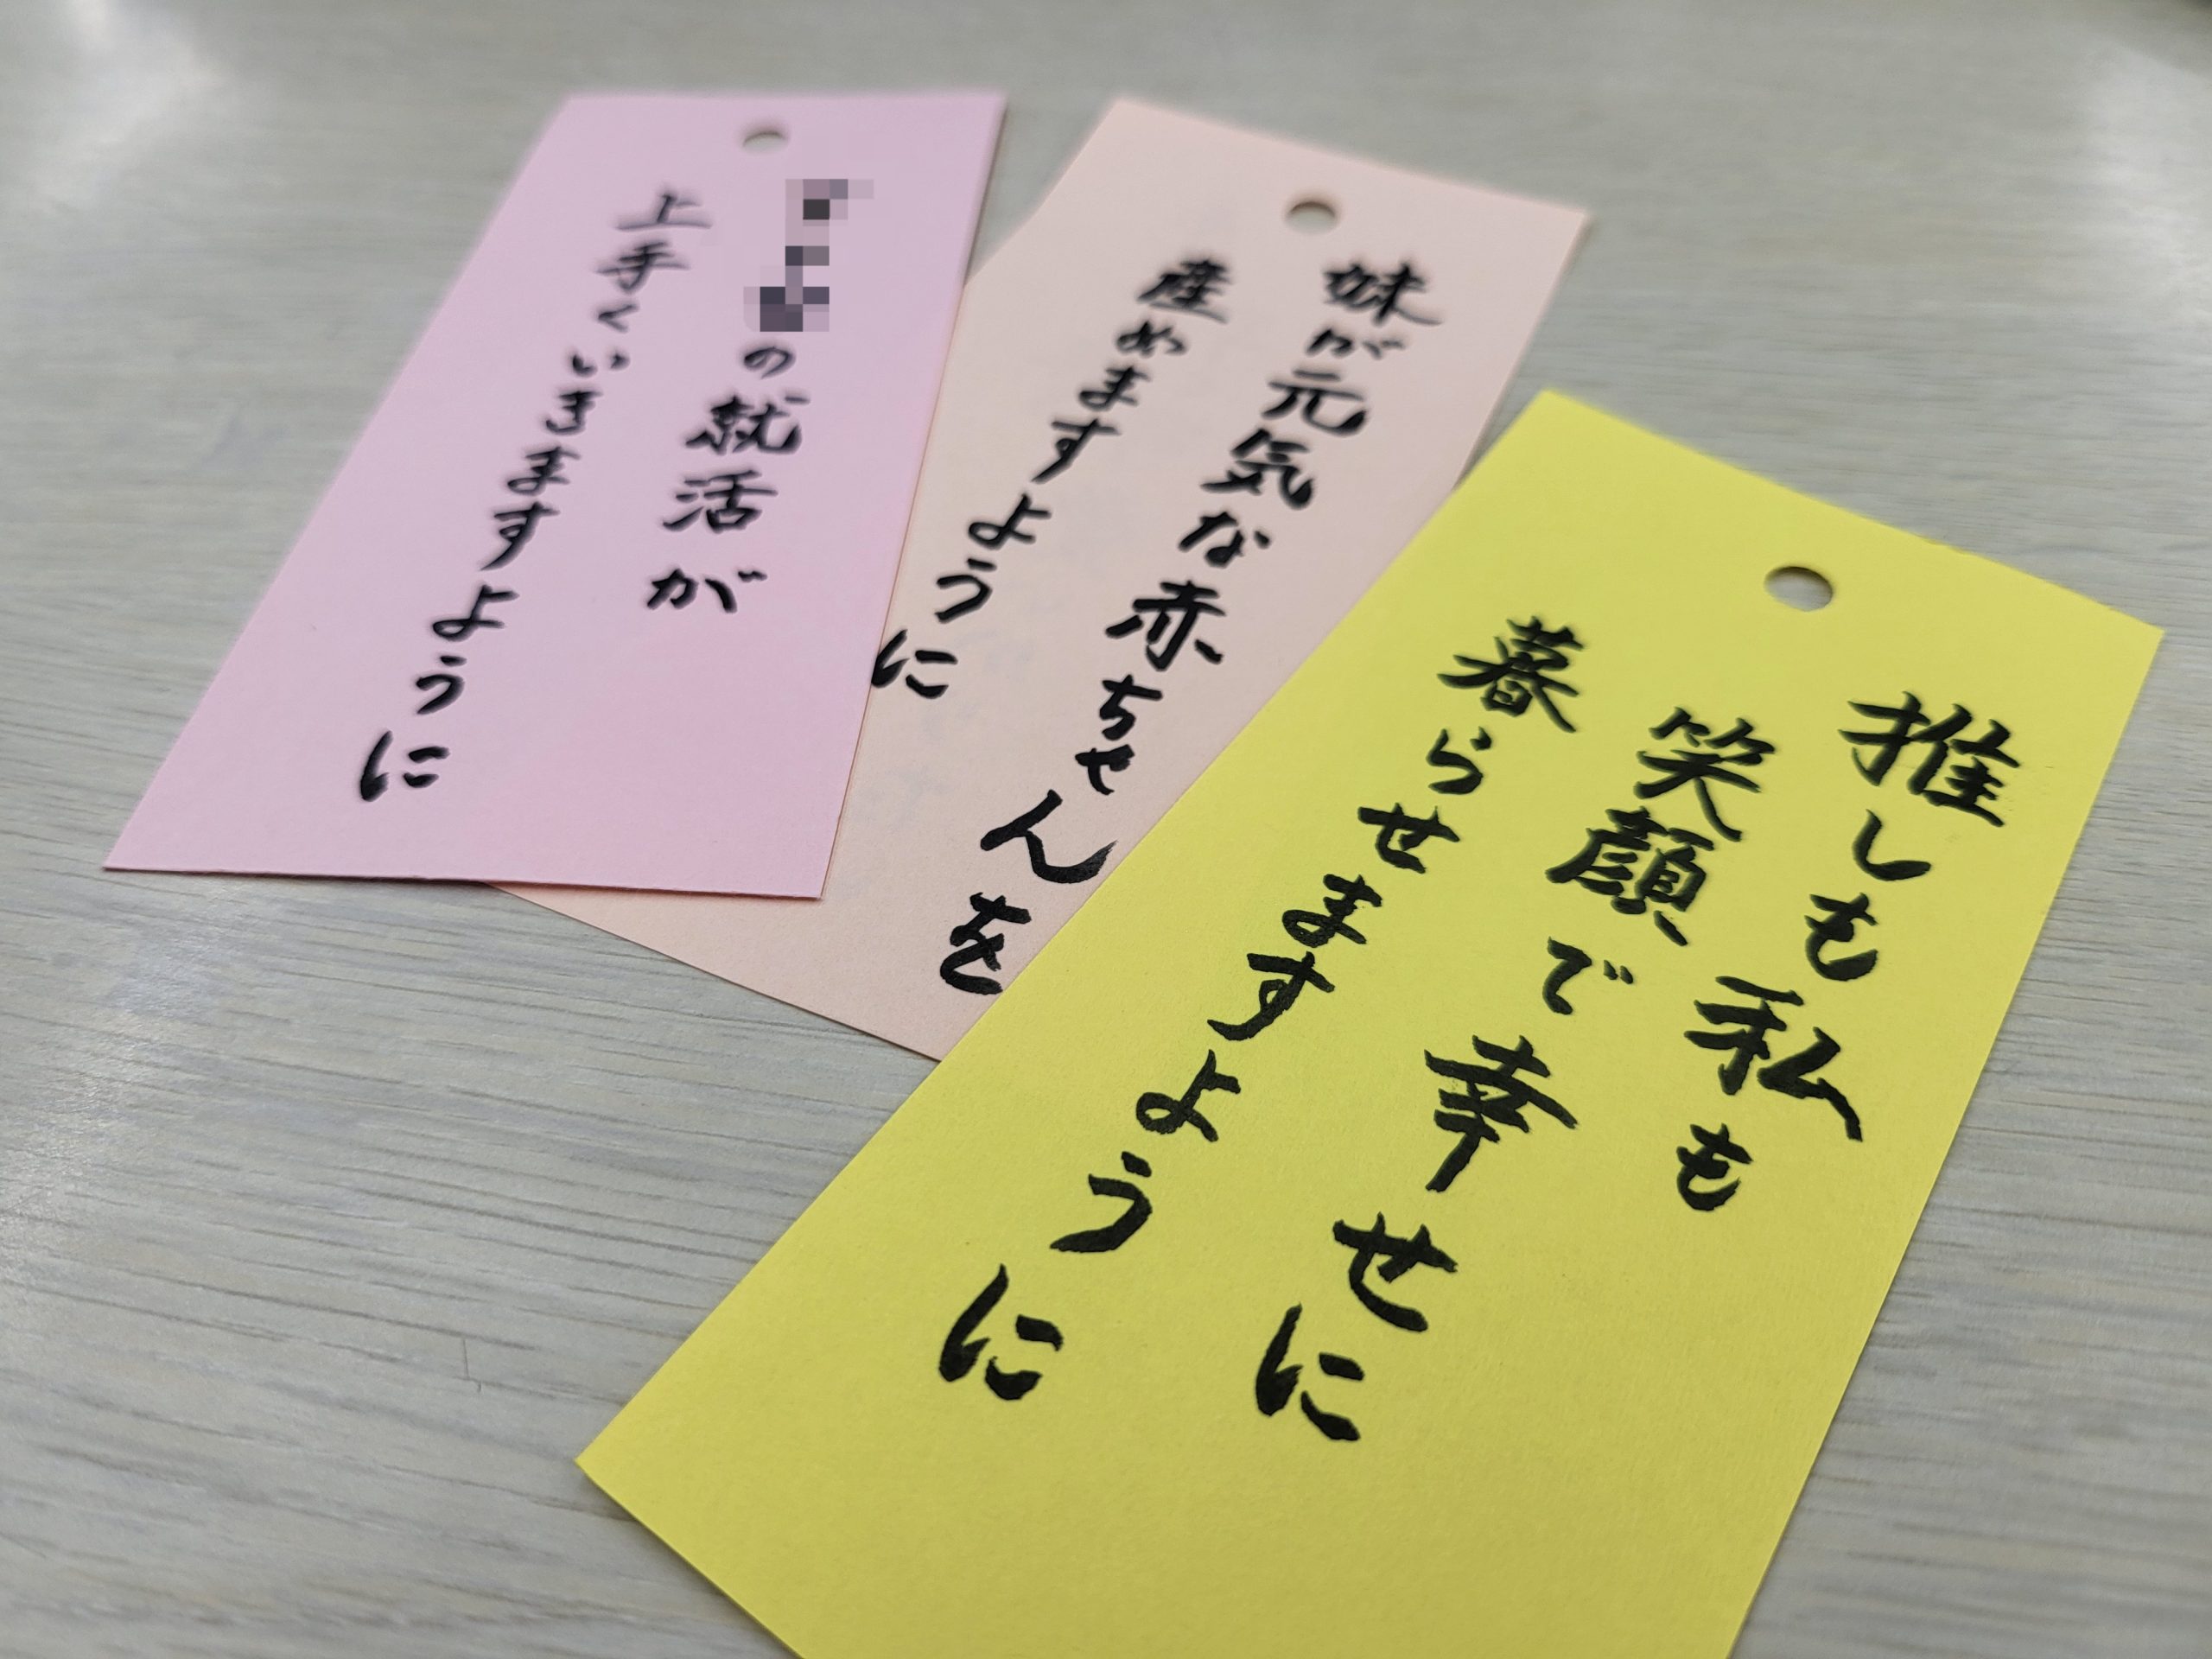 推しも私も
笑顔で幸せに
暮らせますように
妹が元気な赤ちゃんを
産めますように
の就活が
上手くいきますように